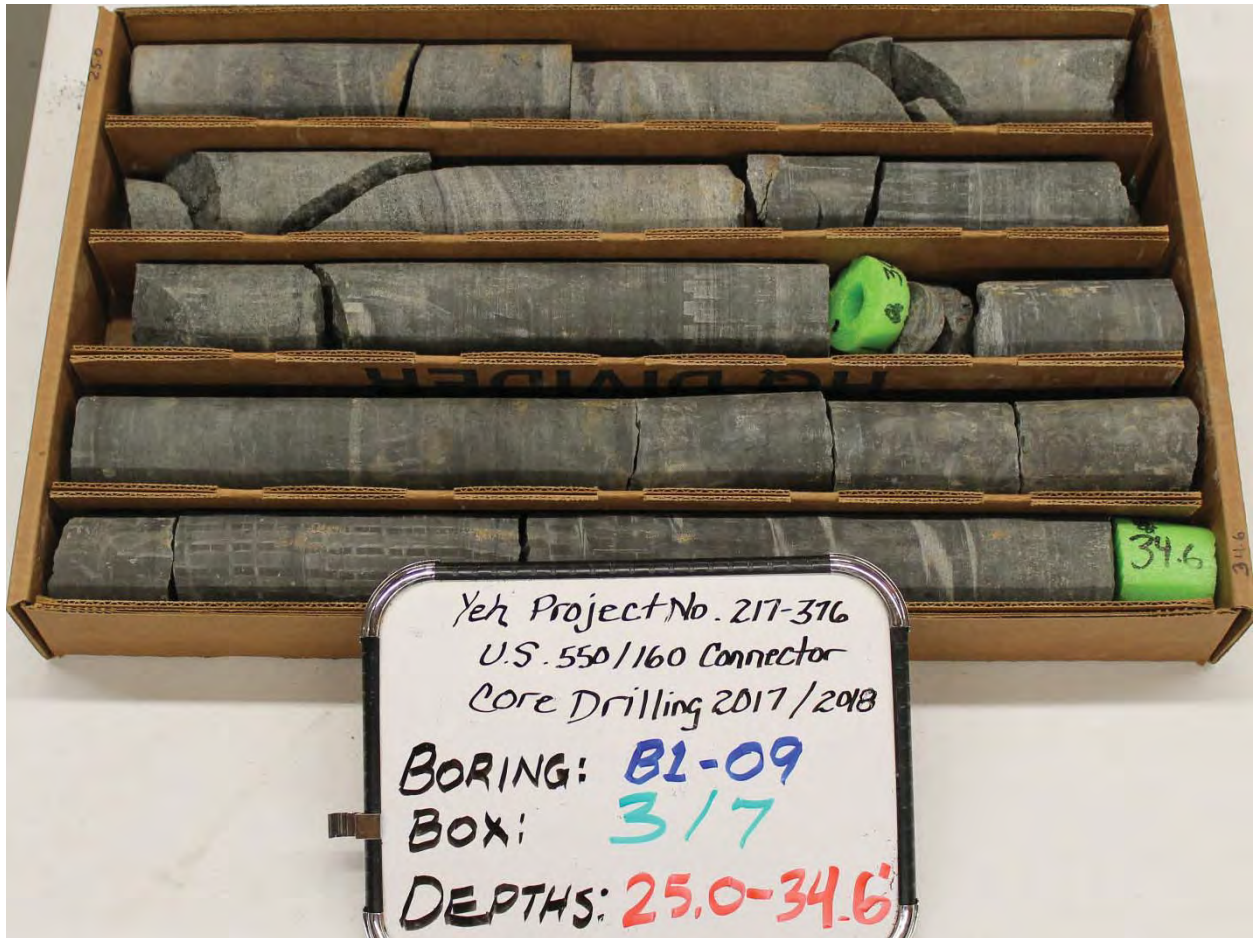 25.0
HQ DIVIDER
34.6
34.6
Yeh Project No. 217-376
U.S. 550/160 Connector
Core Drilling 2017/2018
BORING: B1-09
BOX: 3/7
DEPTHS: 25.0-34.6'